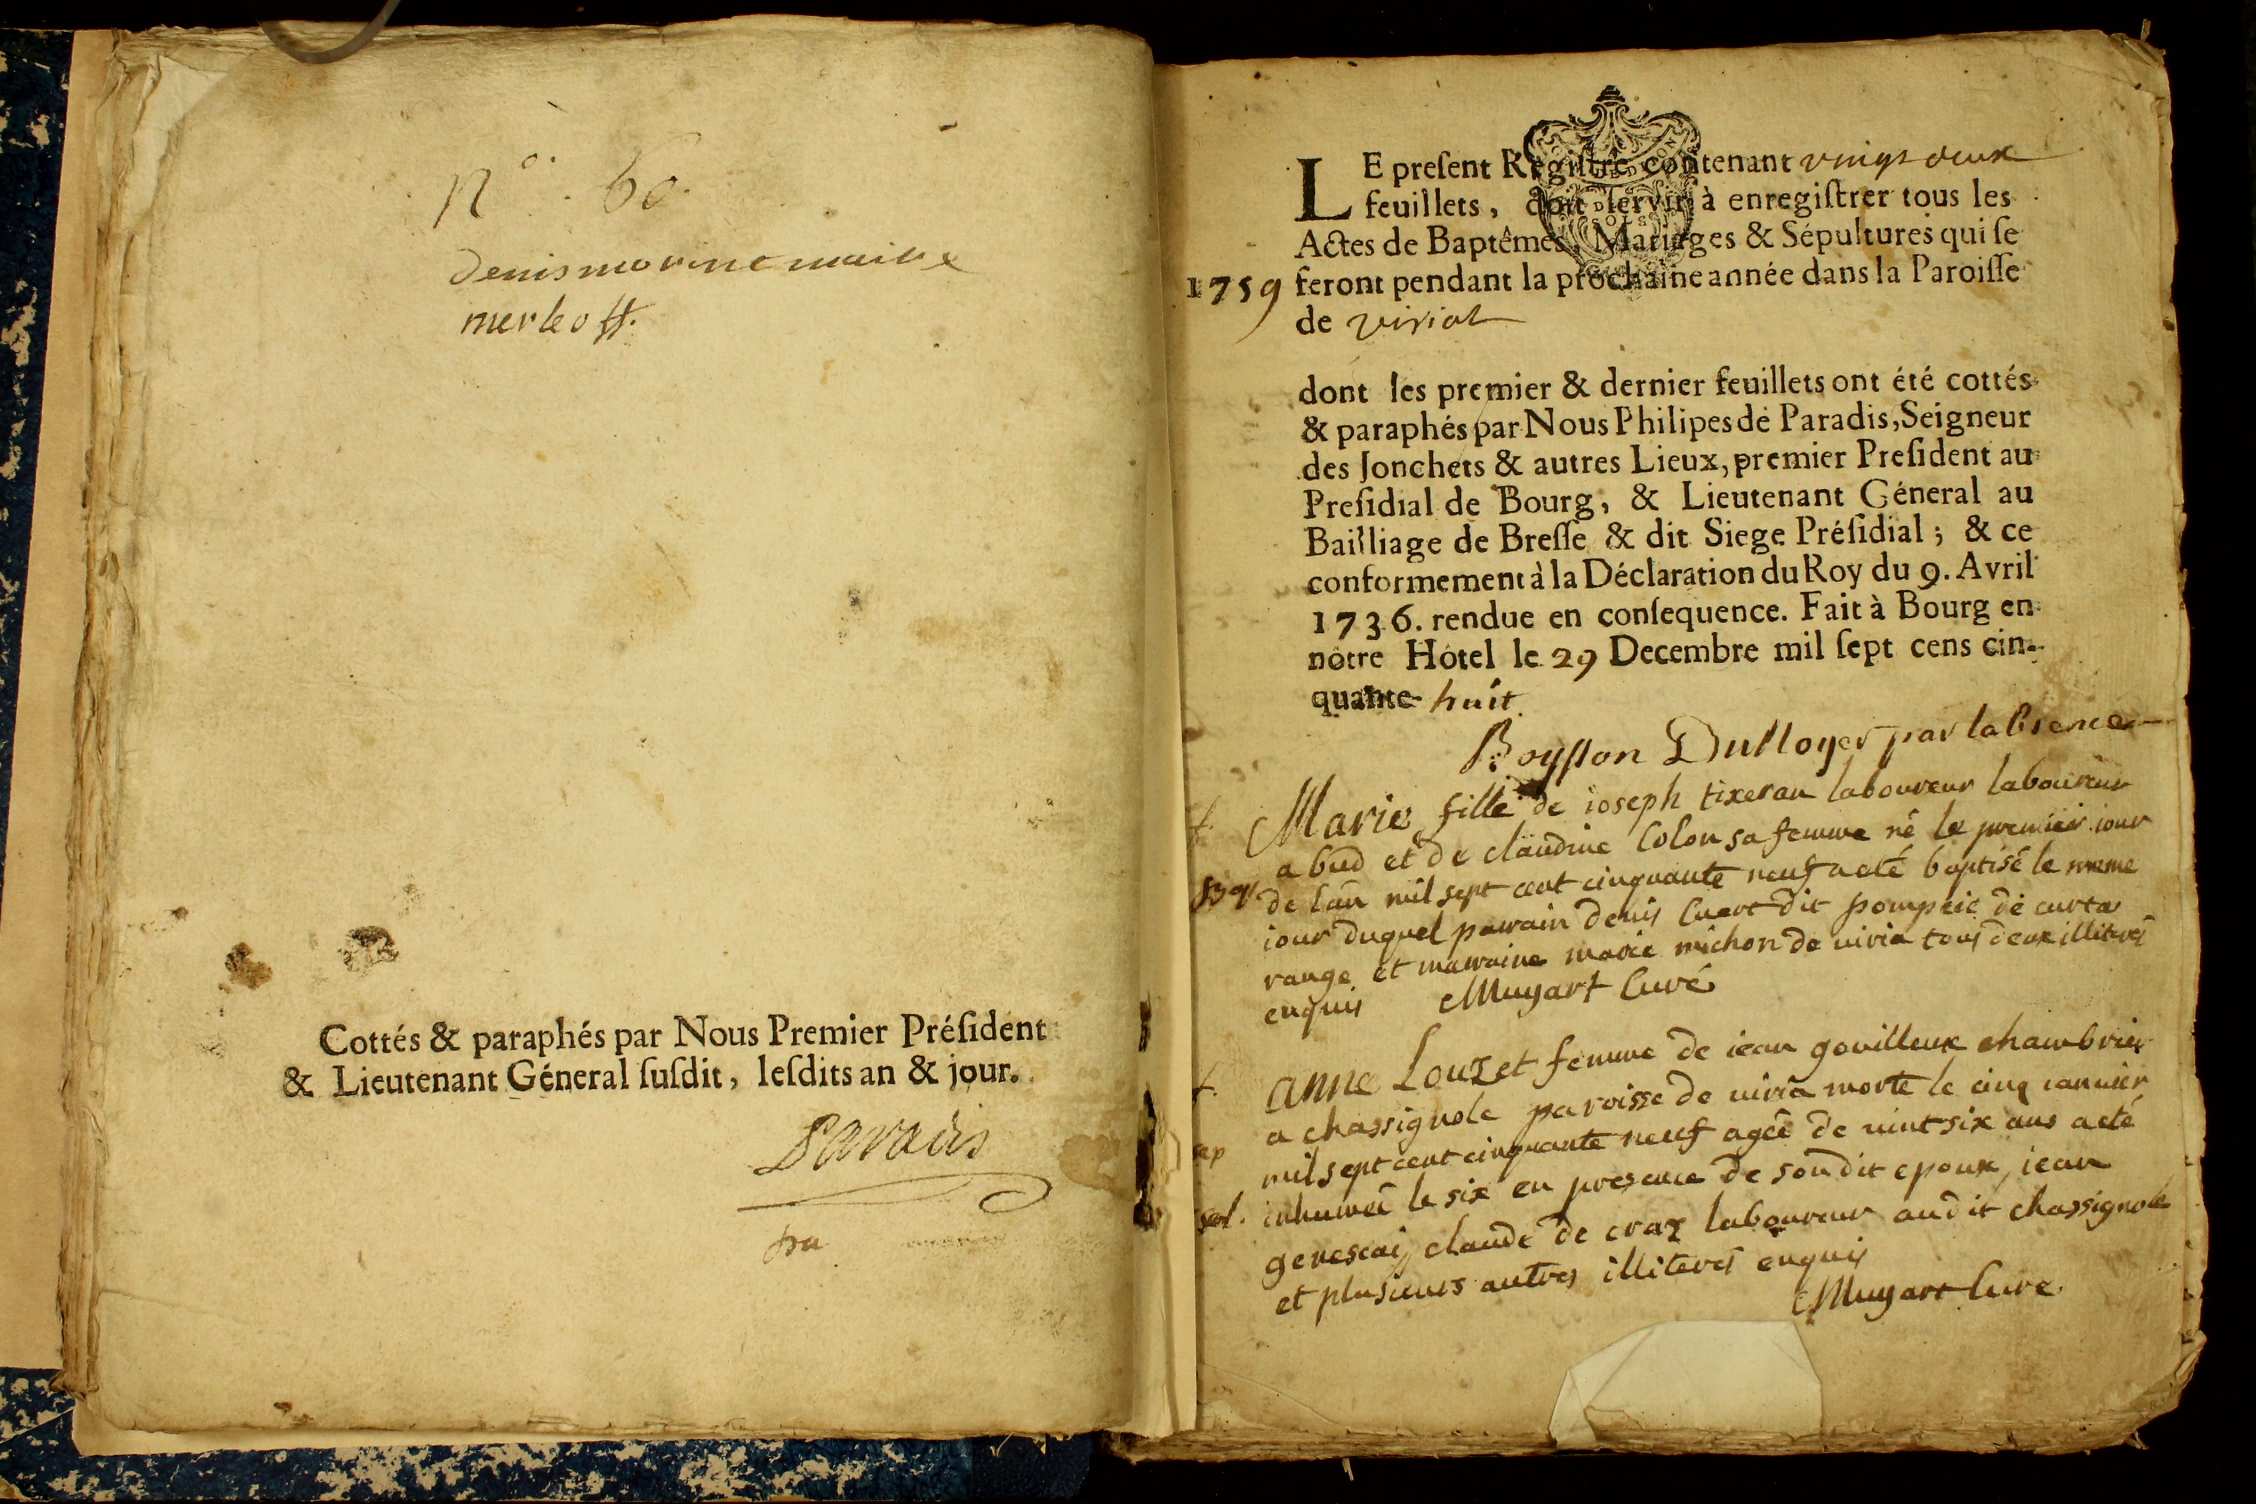 N° 60
denis morine maitre
merle off.
Cottés & paraphés par Nous Premier Préſident
& Lieutenant Géneral ſuſdit, leſdits an & jour.
Paradis
LE preſent Regiſtre contenant vingt deux
feuillets, doit ſervir à enregiſtrer tous les
Actes de Baptêmes, Mariages & Sépultures qui ſe
1759 feront pendant la prochaine année dans la Paroiſſe
de viriat
dont les premier & dernier feuillets ont été cottés
& paraphés par Nous Philipes de Paradis, Seigneur
des Jonchets & autres Lieux, premier Preſident au
Preſidial de Bourg, & Lieutenant Géneral au
Bailliage de Breſſe & dit Siege Préſidial; & ce
conformement à la Déclaration du Roy du 9. Avril
1736. rendue en conſequence. Fait à Bourg en
nôtre Hôtel le 29 Decembre mil ſept cens cin-
quante-huit
par labsence
Marie fille de ioseph tixeran laboureur laboureur
a bud et de claudine Colon sa femme né le premier iour
de lan mil sept cent cinquante neuf a eté baptisé le meme
iour duquel parain denis Cuert dit pompeie de curta
range et maraine marie michon de uiria tous deux illiterés
enquis Muyart Curé
anne Louzet femme de iean gouilleux chambrier
a chassignole paroisse de uiria morte le cinq ianuier
sep mil sept cent cinquante neuf agée de uint six ans a eté
inhumée le six en presence de son dit epoux, iean
geuescai, claude de craz laboureur audit chassignole
et plusieurs autres illiterés enquis
Muyart Cure.